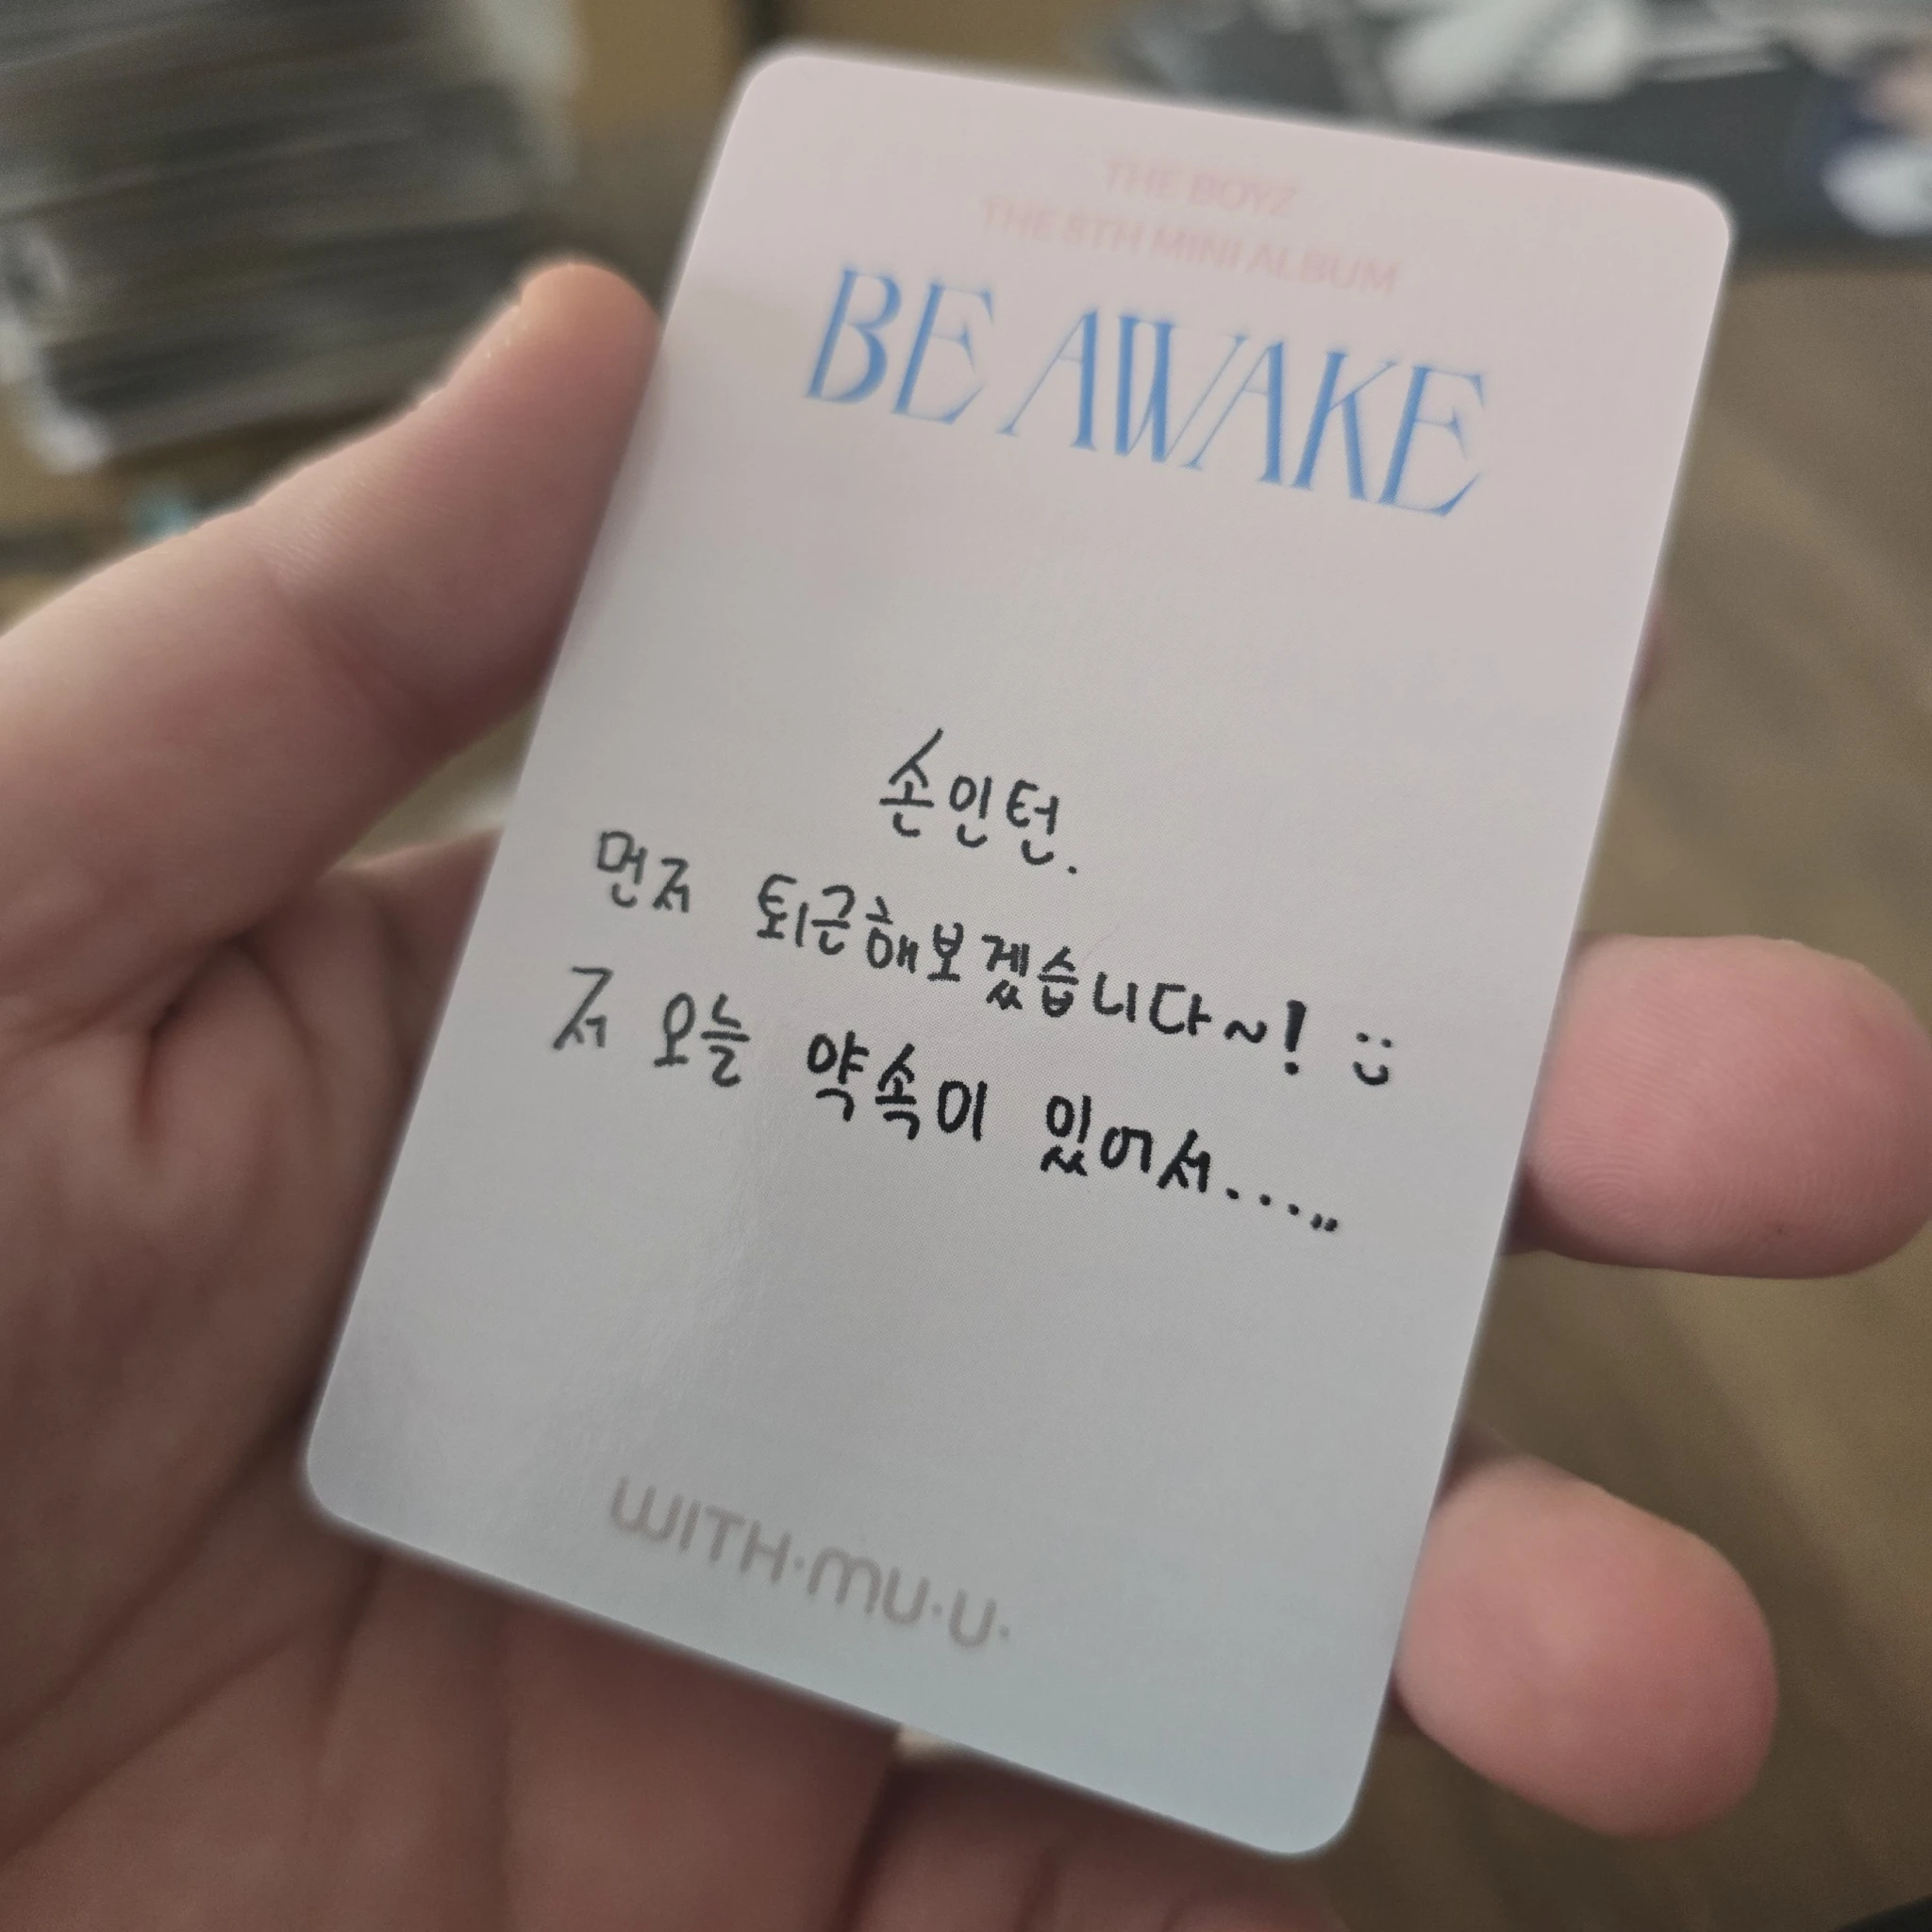 THE BOYZ
THE 8TH MINI ALBUM
BE AWAKE
손인턴.
먼저 퇴근해보겠습니다~! :)
저 오늘 약속이 있어서.....
WITH·MU·U·